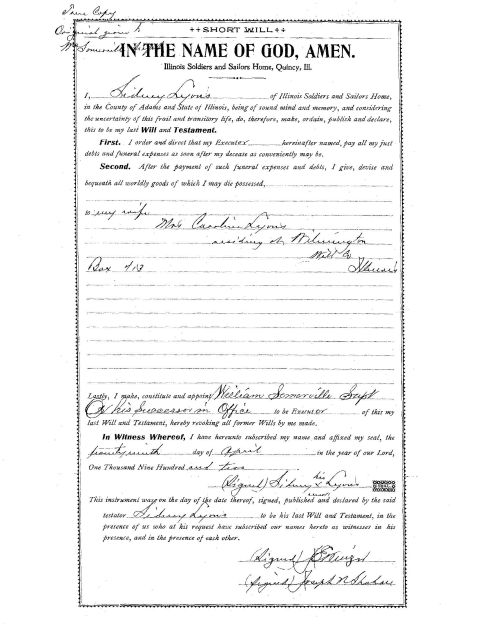 True Copy
Original given
Wm Somerville
++SHORT WILL++
IN THE NAME OF GOD, AMEN.
Illinois Soldiers and Sailors Home, Quincy, Ill.
I, Sidney Lyons of Illinois Soldiers and Sailors Home,
in the County of Adams and State of Illinois, being of sound mind and memory, and considering
the uncertainty of this frail and transitory life, do, therefore, make, ordain, publish and declare,
this to be my last Will and Testament.
First. I order and direct that my Executor hereinafter named, pay all my just
debts and funeral expenses as soon after my decease as conveniently may be.
Second. After the payment of such funeral expenses and debts, I give, devise and
bequeath all worldly goods of which I may die possessed,
to my wife
Mrs Caroline Lyons
residing at Wilmington
Will Co
Box 413 Illinois
Lastly, I make, constitute and appoint William Somerville Supt
Or his Successor in Office to be Executor of this my
last Will and Testament, hereby revoking all former Wills by me made.
In Witness Whereof, I have hereunto subscribed my name and affixed my seal, the
twenty ninth day of April in the year of our Lord,
One Thousand Nine Hundred and two
his
(Signed) Sidney x Lyons SEAL
mark
This instrument was on the day of the date thereof, signed, published and declared by the said
testator Sidney Lyons to be his last Will and Testament, in the
presence of us who at his request have subscribed our names hereto as witnesses in his
presence, and in the presence of each other.
(Signed)
(Signed) Joseph N